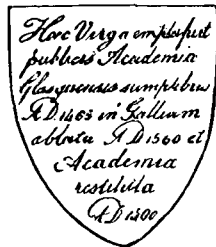 Hæc Virga empta fuit
publicis Academiæ
Glasguensis sumptibus
A.D. 1465 in Galliam
ablata A.D. 1560 et
Academiæ
restituta
A.D. 1590